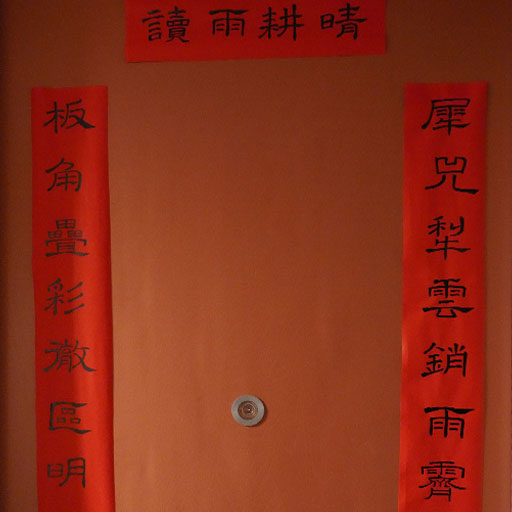 晴耕雨讀
犀兕犁雲銷雨霽
板角疊彩徹區明